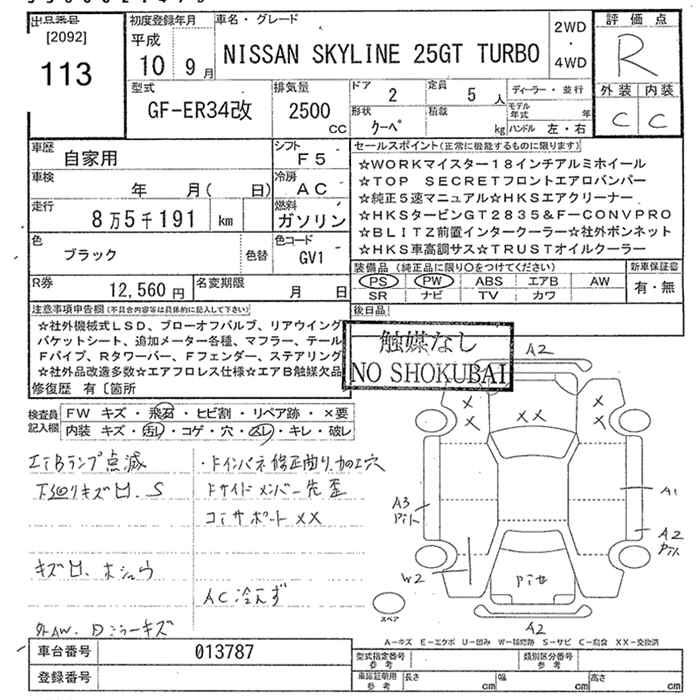 出品番号
[2092]
113
初度登録年月
平成
10 9月
車名・グレード
NISSAN SKYLINE 25GT TURBO
2WD
・
4WD
評価点
R
外装 内装
C C
型式
GF-ER34改
排気量
2500
CC
ドア
2
定員
5 人
形状
クーペ
積載
kg
ディーラー・並行
モデル年式 年
ハンドル 左・右
車歴
自家用
シフト
F5
車検
年 月( 日)
冷房
AC
走行
8万5千191 km
燃料
ガソリン
色
ブラック
色替
色コード
GV1
R券
12,560円
名変期限
月 日
セールスポイント(正常に機能するものに限ります)
☆WORKマイスター18インチアルミホイール
☆TOP SECRETフロントエアロバンパー
☆純正5速マニュアル☆HKSエアクリーナー
☆HKSタービンGT2835&F-CONVPRO
☆BLITZ前置インタークーラー☆社外ボンネット
☆HKS車高調サス☆TRUSTオイルクーラー
装備品(純正品に限り○をつけてください)
PS PW ABS エアB AW
SR ナビ TV カワ
新車保証書
有・無
後日品
注意事項申告欄(不具合内容等は具体的に記入して下さい)
☆社外機械式LSD、ブローオフバルブ、リアウイング
バケットシート、追加メーター各種、マフラー、テール
Fパイプ、Rタワーバー、Fフェンダー、ステアリング
☆社外品改造多数☆エアフロレス仕様☆エアB触媒欠品
修復歴 有〔箇所
触媒なし
NO SHOKUBAI
検査員
記入欄
FW キズ・飛石・ヒビ割・リペア跡・×要
内装 キズ・汚れ・コゲ・穴・スレ・キレ・破レ
エアBランプ点滅
下廻りキズ凹、S
キズ凹、ホシュウ
外AW、Dミラーキズ
・Fインパネ修正曲り、加工穴
Fサイドメンバー先歪
コアサポートXX
AC冷えず
A2
× ×
XX
× ×
A3
Pハン
A1
A2
Pハン
W2
Pセ
A2
スペア
A-キズ E-エクボ U-凹み W-補修跡 S-サビ C-腐食 XX-交換済
車台番号
013787
登録番号
型式指定番号
参考
類別区分番号
参考
車庫証明用
参考
長さ cm
幅 cm
高さ cm